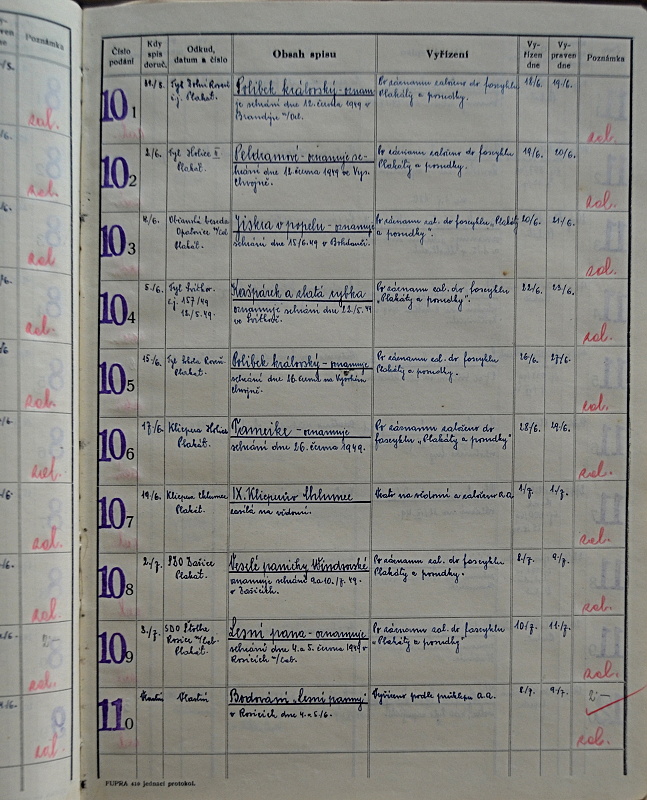 Poznámka
zal.
zal.
zal.
zal.
zal.
zal.
zal.
zal.
zal.
zal.
Číslo podání
Kdy spis doruč.
Odkud, datum a číslo
Obsah spisu
Vyřízení
Vyřízen dne
Vypraven dne
Poznámka
101
Tyl Dolní Roveň
Plakát.
Polibek královský - oznamu-
je sehrání dne 12. června 1949 v
Brandýse n/Orl.
Po záznamu založeno do fascyklu
Plakáty a pomůdky.
18/6.
19/6.
zal.
102
2/6.
Tyl Holice II.
Plakát.
oznamuje se-
hrání dne 12. června 1949 ve Vys.
Chvojně.
Po záznamu založeno do fascyklu
Plakáty a pomůdky.
19/6.
20/6.
zal.
103
4/6.
Občanská beseda
Opatovice n/Lab.
Plakát.
Jiskra v popelu - oznamuje
sehrání dne 15/6.49 v Bohdanči.
Po záznamu zal. do fascyklu „Plakáty
a pomůdky".
20/6.
21/6.
zal.
104
5./6.
Tyl Svítkov.
č.j. 157/49
Kašpárek a zlatá rybka
oznamuje sehrání dne 22/5.49
ve Svítkově.
Po záznamu zal. do fascyklu
„Plakáty a pomůdky".
22/6.
23/6.
zal.
105
15/6.
Plakát.
Polibek královský - oznamuje
sehrání dne 26. června na Vysokém
Chvojně.
Po záznamu zal. do fascyklu
„Plakáty a pomůdky.
26/6.
27/6.
zal.
106
17/6.
Klicpera Holice
Plakát.
oznamuje
sehrání dne 26. června 1949.
Po záznamu založeno do
fascyklu „Plakáty a pomůdky"
28/6.
29/6.
zal.
107
19/6.
Klicpera Chlumec
Plakát.
IX. Klicperův Chlumec
zasílá na vědomí.
Vzato na vědomí a založeno a.a.
1/7.
1/7.
zal.
108
2./7.
SDO Dašice
Plakát.
Veselé paničky Windsorské
oznamuje sehrání 9. a 10./7. 49.
v Dašicích.
Po záznamu zal. do fascyklu
Plakáty a pomůdky.
8/7.
9/7.
zal.
109
3./7.
SDO
Rosice n/Lab.
Plakát.
Lesní panna - oznamuje
sehrání dne 4. a 5. června 1949 v
Rosicích n/Lab.
Po záznamu zal. do fascyklu
„Plakáty a pomůdky"
10/7.
11/7.
zal.
110
Vlastní
Vlastní
Bodování „Lesní panny"
v Rosicích dne 4. a 5/6.
Vyřízeno podle průklepu a.a.
8/7.
9/7.
2.—
zal.
FUPRA 419 jednací protokol.